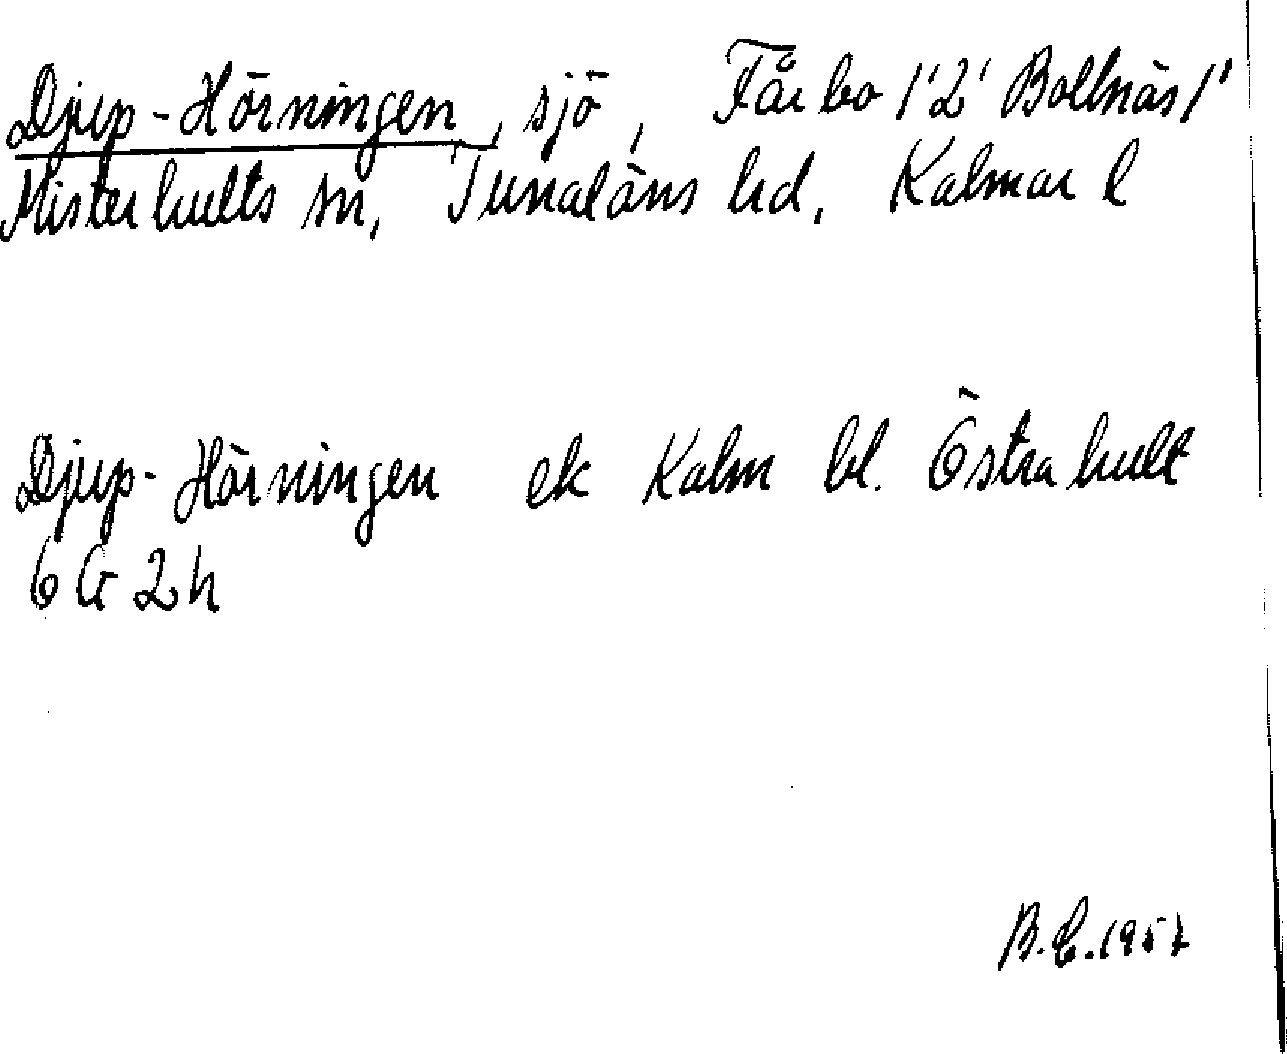 Djup-Hörningen, sjö, Fårbo 1'2' Bollnäs 1'
Misterhults sn, Tunaläns hd, Kalmar l
Djup-Hörningen ek Kalm bl. Östrahult
6G 2h
B.E. 1957